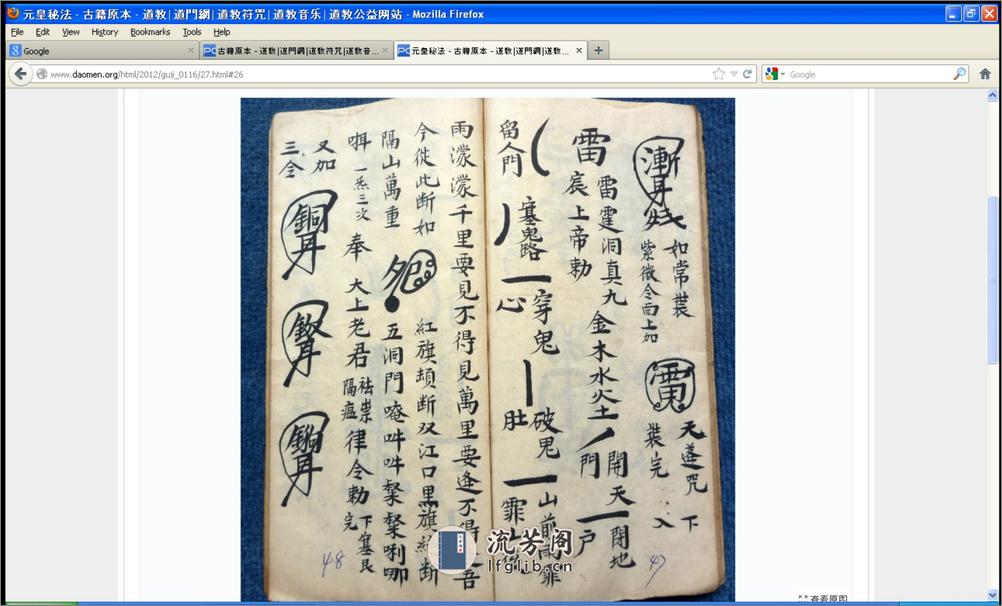 元皇秘法 - 古籍原本 - 道教|道門網|道教符咒|道教音乐|道教公益网站 - Mozilla Firefox
File Edit View History Bookmarks Tools Help
Google
古籍原本 - 道教|道門網|道教符咒|道教音...
元皇秘法 - 古籍原本 - 道教|道門網|道教...
www.daomen.org/html/2012/guji_0116/27.html#26
Google
如常裝
紫微令面上加
天蓬咒
裝完
下
入
雷
雷霆洞真九
宸上帝勅
金木水火土
開天
門
閉地
戶
留人門
塞鬼路
穿鬼
心
破鬼
肚
山前雨霏
霏
雨濛濛千里要見不得見萬里要逢不得
吾
今從此断如
紅旗頡断双江口黑旗
断
隔山萬重
五洞門唵吽吽㗭㗭唎哪
一炁三次
奉
太上老君
祛祟
隔瘟
律令勅
下塞艮
完
又加
三仝
47
48
流芳阁
lfglib.cn
查看原图